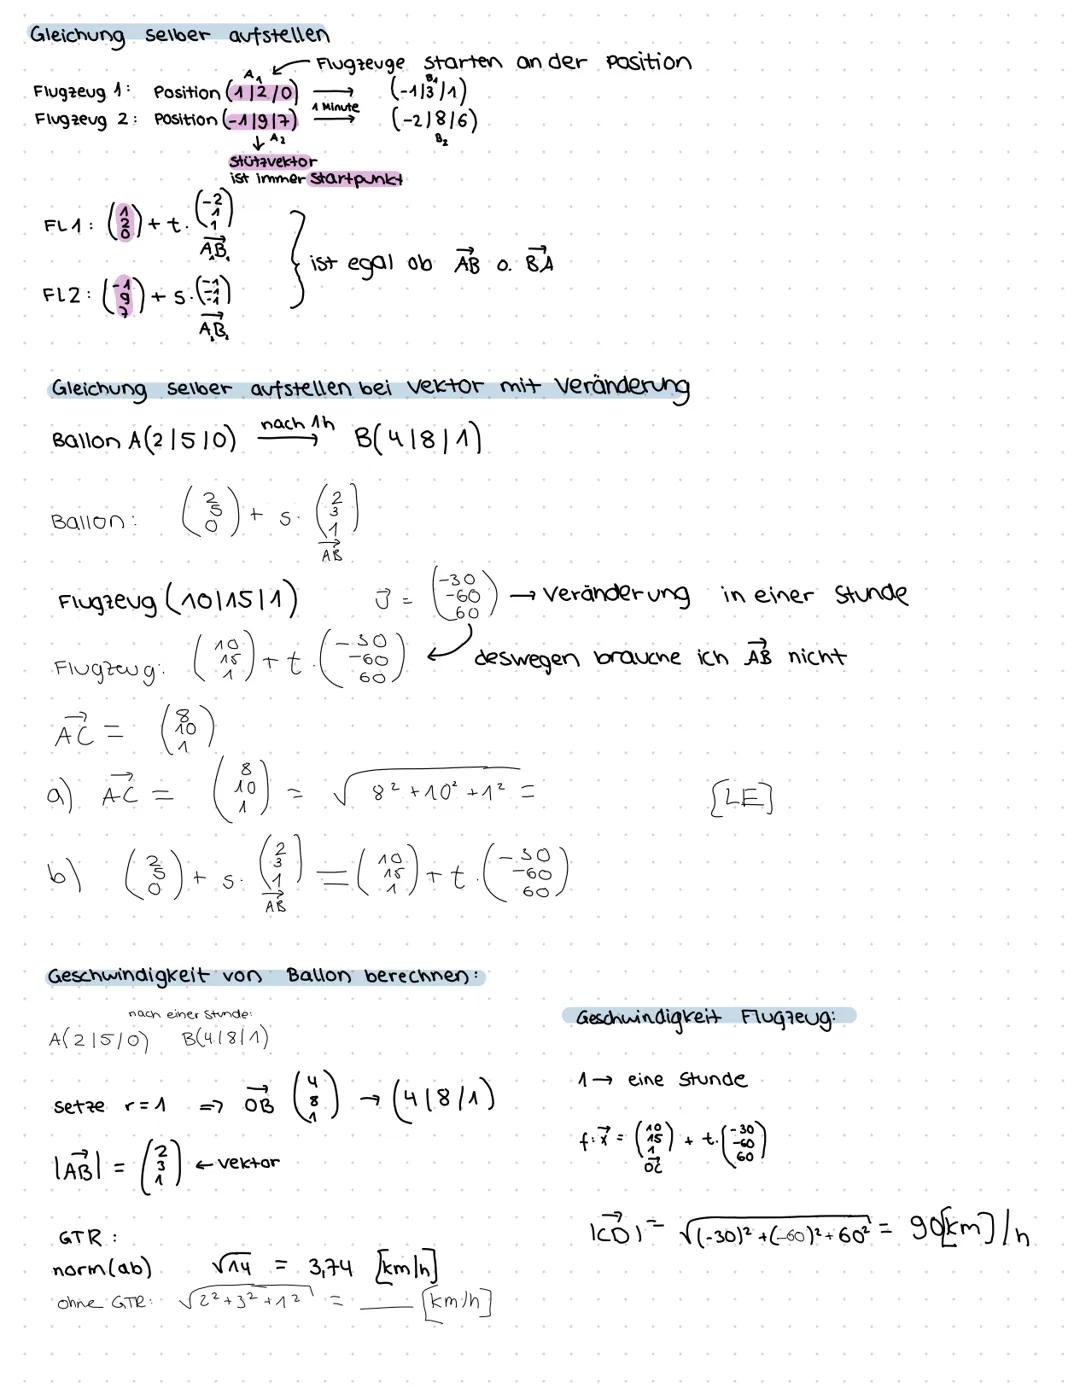 Gleichung selber aufstellen
Flugzeuge starten an der Position
A₁ B₁
Flugzeug 1: Position (1|2|0) → (-1|3|1)
1 Minute
Flugzeug 2: Position (-1|9|7) → (-2|8|6)
↓ A₂ B₂
Stützvektor
ist immer Startpunkt
FL1: (1 2 0) + t · (-2 1 1)
AB₁
} ist egal ob AB o. BA
FL2: (-1 9 7) + s · (-1 -1 -1)
A₂B₂
Gleichung selber aufstellen bei Vektor mit Veränderung
Ballon A(2|5|0) nach 1h → B(4|8|1)
Ballon: (2 5 0) + s · (2 3 1)
AB
Flugzeug (10|15|1) v = (-30 -60 60) → Veränderung in einer Stunde
Flugzeug: (10 15 1) + t · (-30 -60 60) ← deswegen brauche ich AB nicht
AC = (8 10 1)
a) AC = (8 10 1) = √8² + 10² + 1² = [LE]
b) (2 5 0) + s · (2 3 1) = (10 15 1) + t · (-30 -60 60)
AB
Geschwindigkeit von Ballon berechnen:
nach einer Stunde:
A(2|5|0) B(4|8|1)
setze r = 1 => OB (4 8 1) → (4|8|1)
|AB| = (2 3 1) ← Vektor
GTR:
norm(ab) √14 = 3,74 [km/h]
ohne GTR: √2² + 3² + 1² = ___ [km/h]
Geschwindigkeit Flugzeug:
1 → eine Stunde
f: x = (10 15 1) + t · (-30 -60 60)
OC
|CD| = √(-30)² + (-60)² + 60² = 90[km]/h